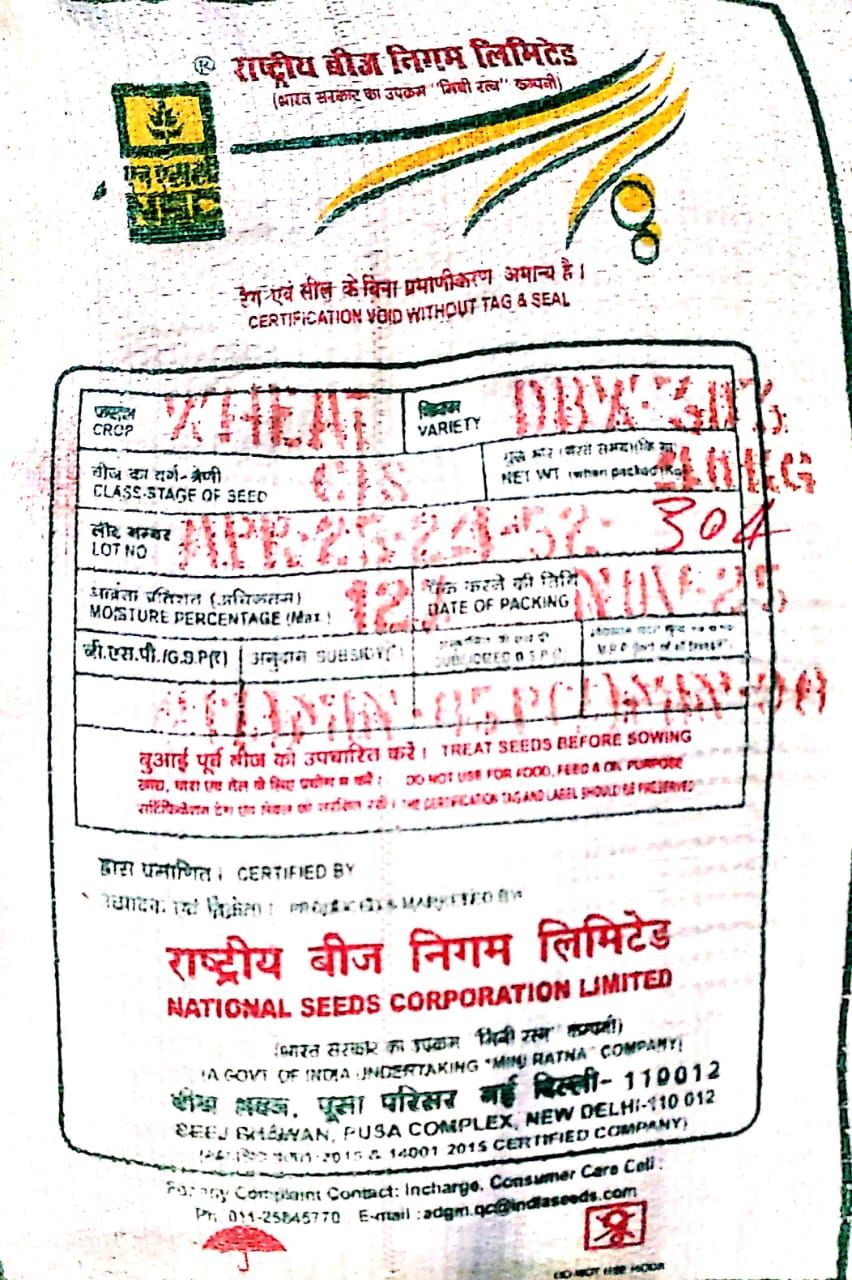 ® राष्ट्रीय बीज निगम लिमिटेड
(भारत सरकार का उपक्रम "मिनी रत्न" कम्पनी)
टैग एवं सील के बिना प्रमाणीकरण अमान्य है।
CERTIFICATION VOID WITHOUT TAG & SEAL
फसल WHEAT किस्म DBW-303
CROP VARIETY
बीज का वर्ग-श्रेणी C/S
CLASS-STAGE OF SEED NET WT (when packed) Kg 40KG
लौट नम्बर APR-25-24-52- 304
LOT NO
आद्रता प्रतिशत (अधिकतम) 12% पैक करने की तिथि NOV-25
MOISTURE PERCENTAGE (Max.) DATE OF PACKING
बी.एस.पी./G.S.P(₹) अनुदान SUBSIDY
बुआई पूर्व बीज को उपचारित करें। TREAT SEEDS BEFORE SOWING
DO NOT USE FOR FOOD, FEED & OIL PURPOSE
THE CERTIFICATION TAG AND LABEL SHOULD BE PRESERVED
द्वारा प्रमाणित। CERTIFIED BY
उत्पादक एवं विक्रेता। PRODUCED & MARKETED BY
राष्ट्रीय बीज निगम लिमिटेड
NATIONAL SEEDS CORPORATION LIMITED
(भारत सरकार का उपक्रम "मिनी रत्न" कम्पनी)
(A GOVT OF INDIA UNDERTAKING "MINI RATNA" COMPANY)
बीज भवन, पूसा परिसर नई दिल्ली- 110012
BEEJ BHAWAN, PUSA COMPLEX, NEW DELHI-110 012
9001-2015 & 14001 2015 CERTIFIED COMPANY)
For any Complaint Contact: Incharge, Consumer Care Cell :
Ph. 011-25845770 E-mail :adgm.qc@indiaseeds.com
DO NOT USE HOOK